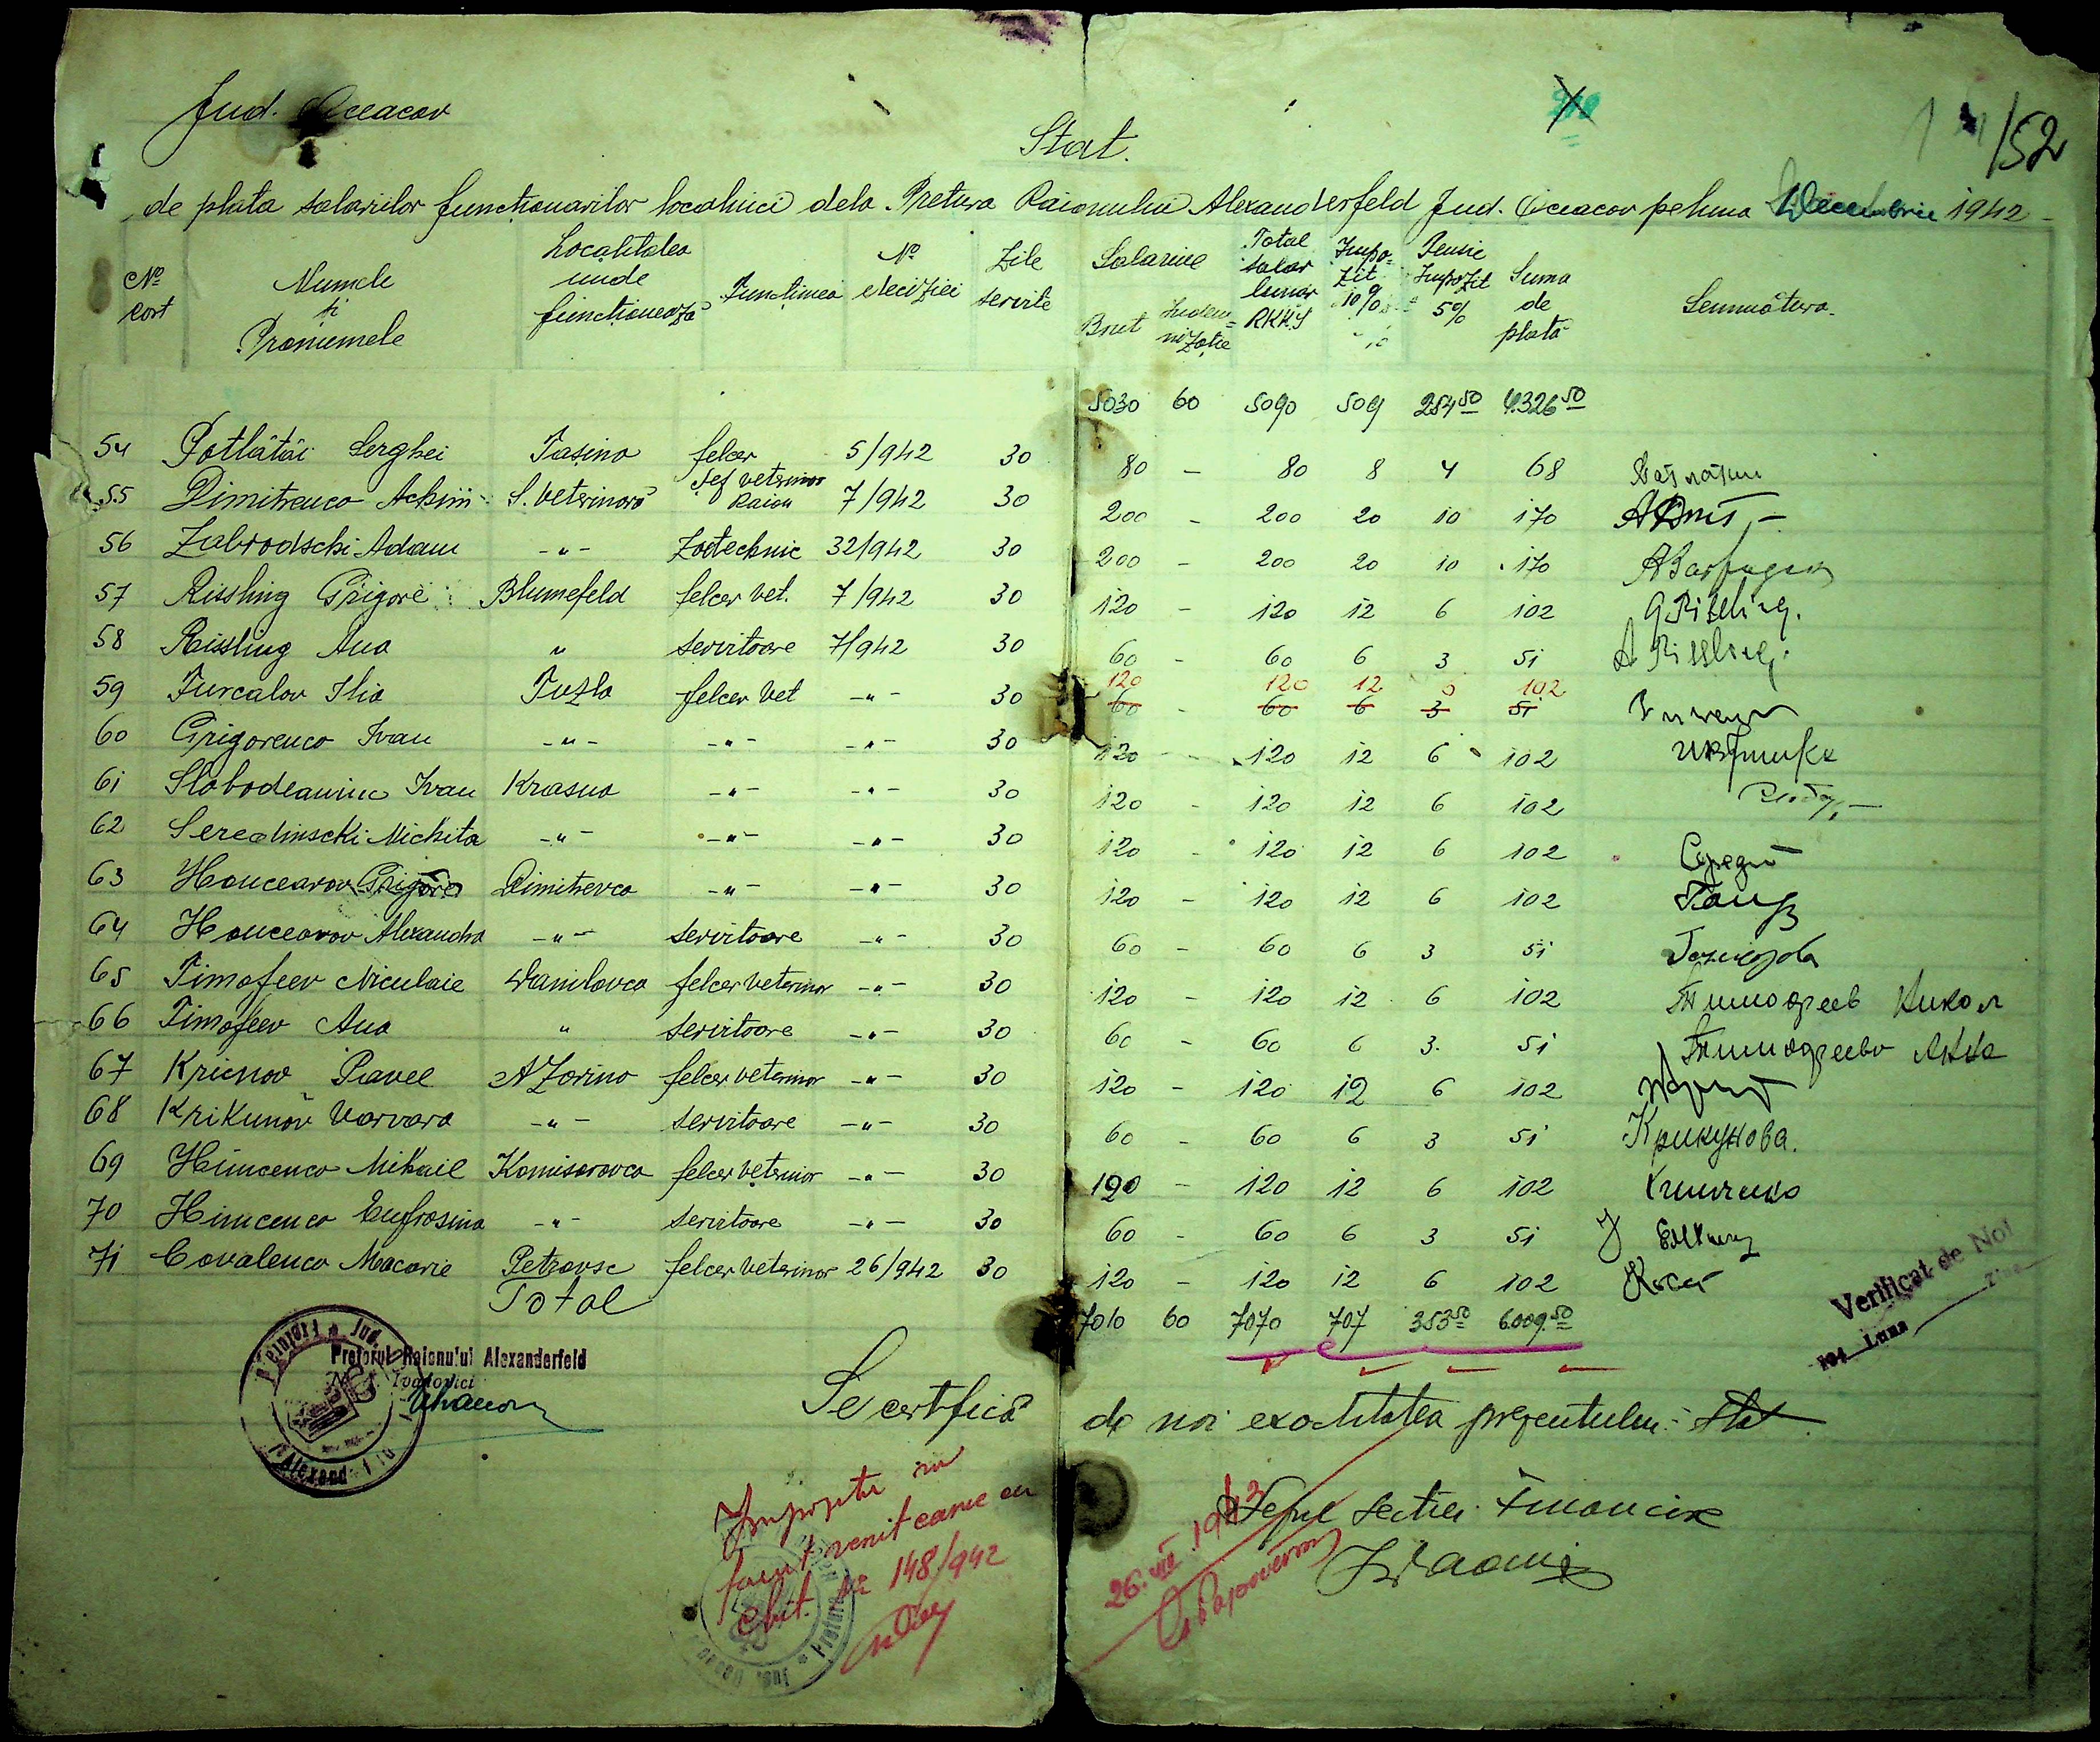 Jud. Oceacov
/52
Stat.
de plata salariilor funcționarilor localnici dela Pretura Raionului Alexanderfeld Jud. Oceacov peluna Decembrie 1942
No Cort Numele și Pronumele Localitatea unde funcționează Funcțiunea No deciziei Zile servite Salariul Brut Indemnizație Total salar lunar RKKS Impozit 10% Pensie Impozit 5% Suma de plată Semnătura
5030 60 5090 509 254 50 4.326 50
54 Potlătăi Serghei Tasino felcer 5/942 30 80 - 80 8 4 68
55 Dimitrenco Achim S. Veterinară Șef veterinar Raion 7/942 30 200 - 200 20 10 170
56 Zabrodschi Adam -"- Zootechnic 32/942 30 200 - 200 20 10 170
57 Rissling Grigore Blumefeld felcer vet. 7/942 30 120 - 120 12 6 102 G Rissling.
58 Rissling Ana " servitoare 7/942 30 60 - 60 6 3 51 A Rissling.
120 120 12 6 102
59 Turcalov Ilia Tuzla felcer vet -"- 30 60 - 60 6 3 51
60 Grigorenco Ivan -"- -"- -"- 30 120 - 120 12 6 102
61 Slobodeaniuc Ivan Krasna -"- -"- 30 120 - 120 12 6 102
62 Seredinschi Nichita -"- -"- -"- 30 120 - 120 12 6 102
63 Honcearov Grigore Dimitrevca -"- -"- 30 120 - 120 12 6 102
64 Honcearov Alexandra -"- servitoare -"- 30 60 - 60 6 3 51
65 Timofeev Niculaie Danilovca felcer veterinar -"- 30 120 - 120 12 6 102 Тимофеев Никол
66 Timofeev Ana " servitoare -"- 30 60 - 60 6 3 51 Тимофеева Анна
67 Kricnov Pavel A Zorino felcer veterinar -"- 30 120 - 120 12 6 102
68 Krikunov Varvara -"- servitoare -"- 30 60 - 60 6 3 51 Крикунова.
69 Himcenco Mihail Komisarovca felcer veterinar -"- 30 120 - 120 12 6 102 Химченко
70 Himcenco Eufrosina -"- servitoare -"- 30 60 - 60 6 3 51
71 Covalenco Macarie Petrovsc felcer veterinar 26/942 30 120 - 120 12 6 102
Total 7010 60 7070 707 353 50 6.009 50
Verificat de Noi
194 Luna Ziua
Pretorul Raionului Alexanderfeld
Se certifică de noi exactitatea prezentului stat
Șeful Secției Financiare
Impozitu
venit
148/942
26. VII 1943